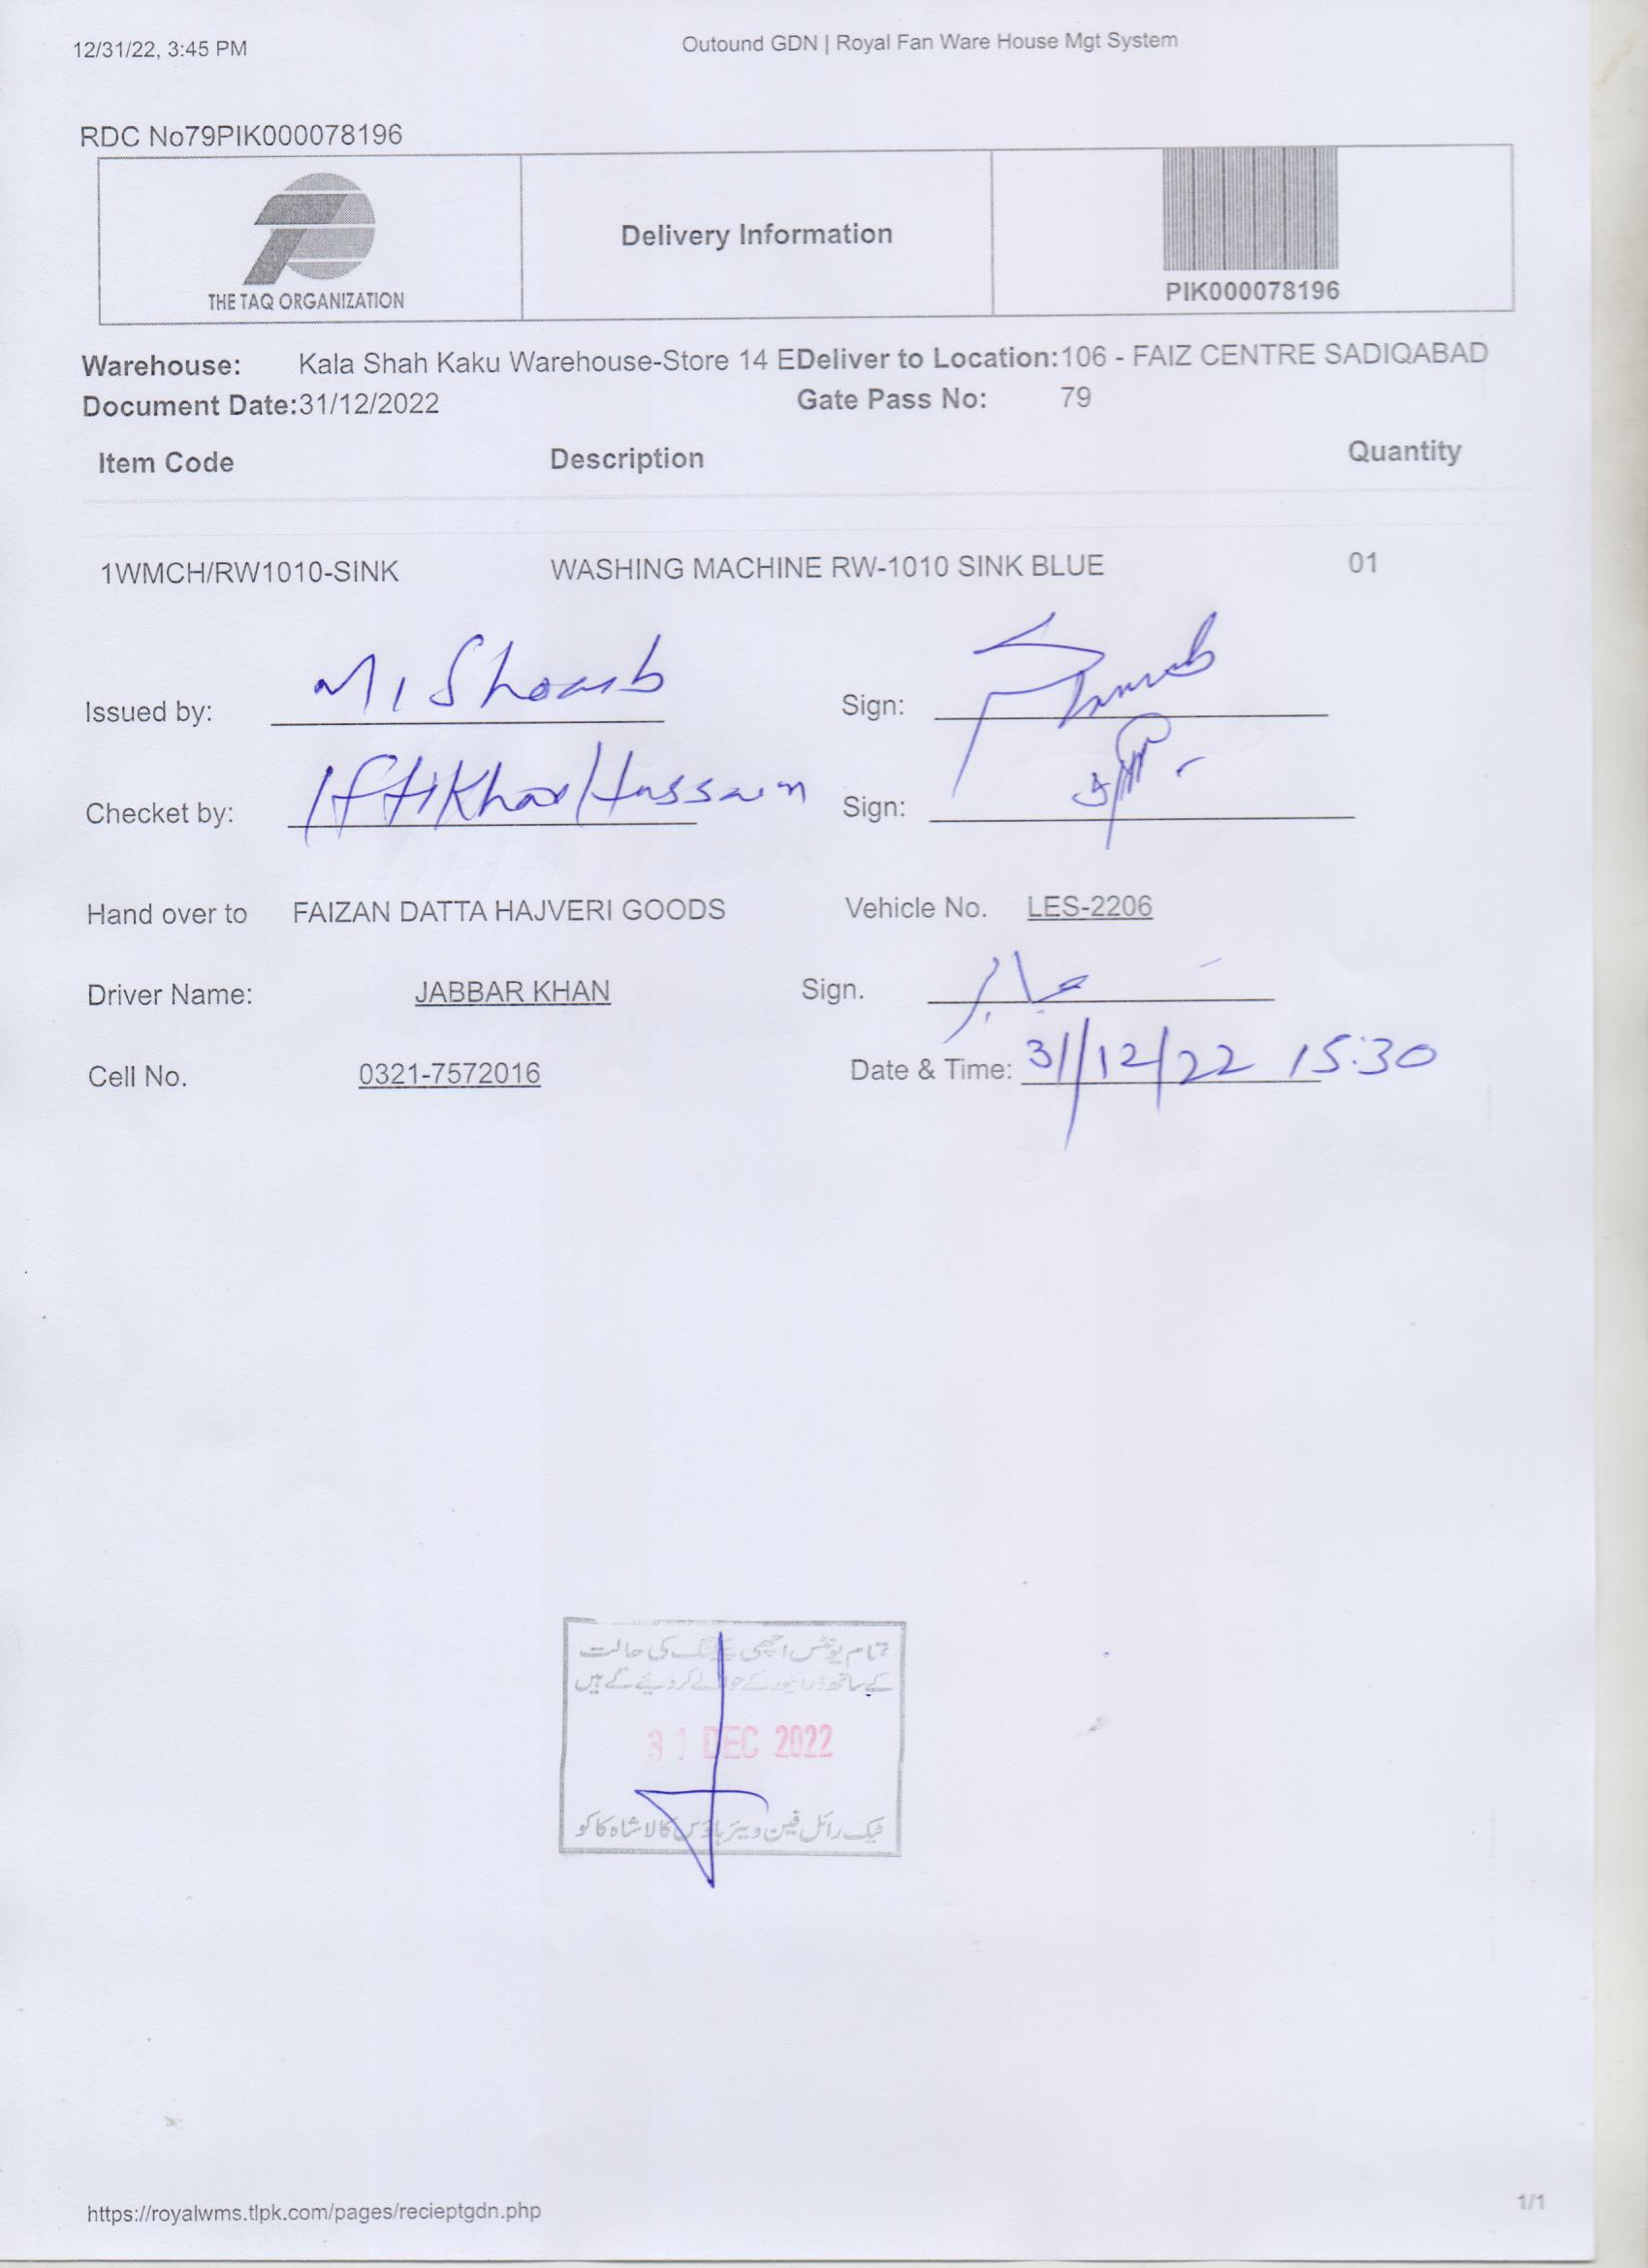 12/31/22, 3:45 PM Outound GDN | Royal Fan Ware House Mgt System
RDC No79PIK000078196
THE TAQ ORGANIZATION
Delivery Information
PIK000078196
Warehouse: Kala Shah Kaku Warehouse-Store 14 E Deliver to Location: 106 - FAIZ CENTRE SADIQABAD
Document Date: 31/12/2022 Gate Pass No: 79
Item Code Description Quantity
1WMCH/RW1010-SINK WASHING MACHINE RW-1010 SINK BLUE 01
Issued by: M, Shoaib Sign:
Checket by: Iftikhar Hussain Sign:
Hand over to FAIZAN DATTA HAJVERI GOODS Vehicle No. LES-2206
Driver Name: JABBAR KHAN Sign. جبار
Cell No. 0321-7572016 Date & Time: 31/12/22 15:30
تمام یونٹس اچھی پیکنگ کی حالت
کے ساتھ ڈرائیور کے حوالے کر دیئے گئے ہیں
31 DEC 2022
ٹیک رائل فین ویئر ہاؤس کالا شاہ کاکو
https://royalwms.tlpk.com/pages/recieptgdn.php 1/1